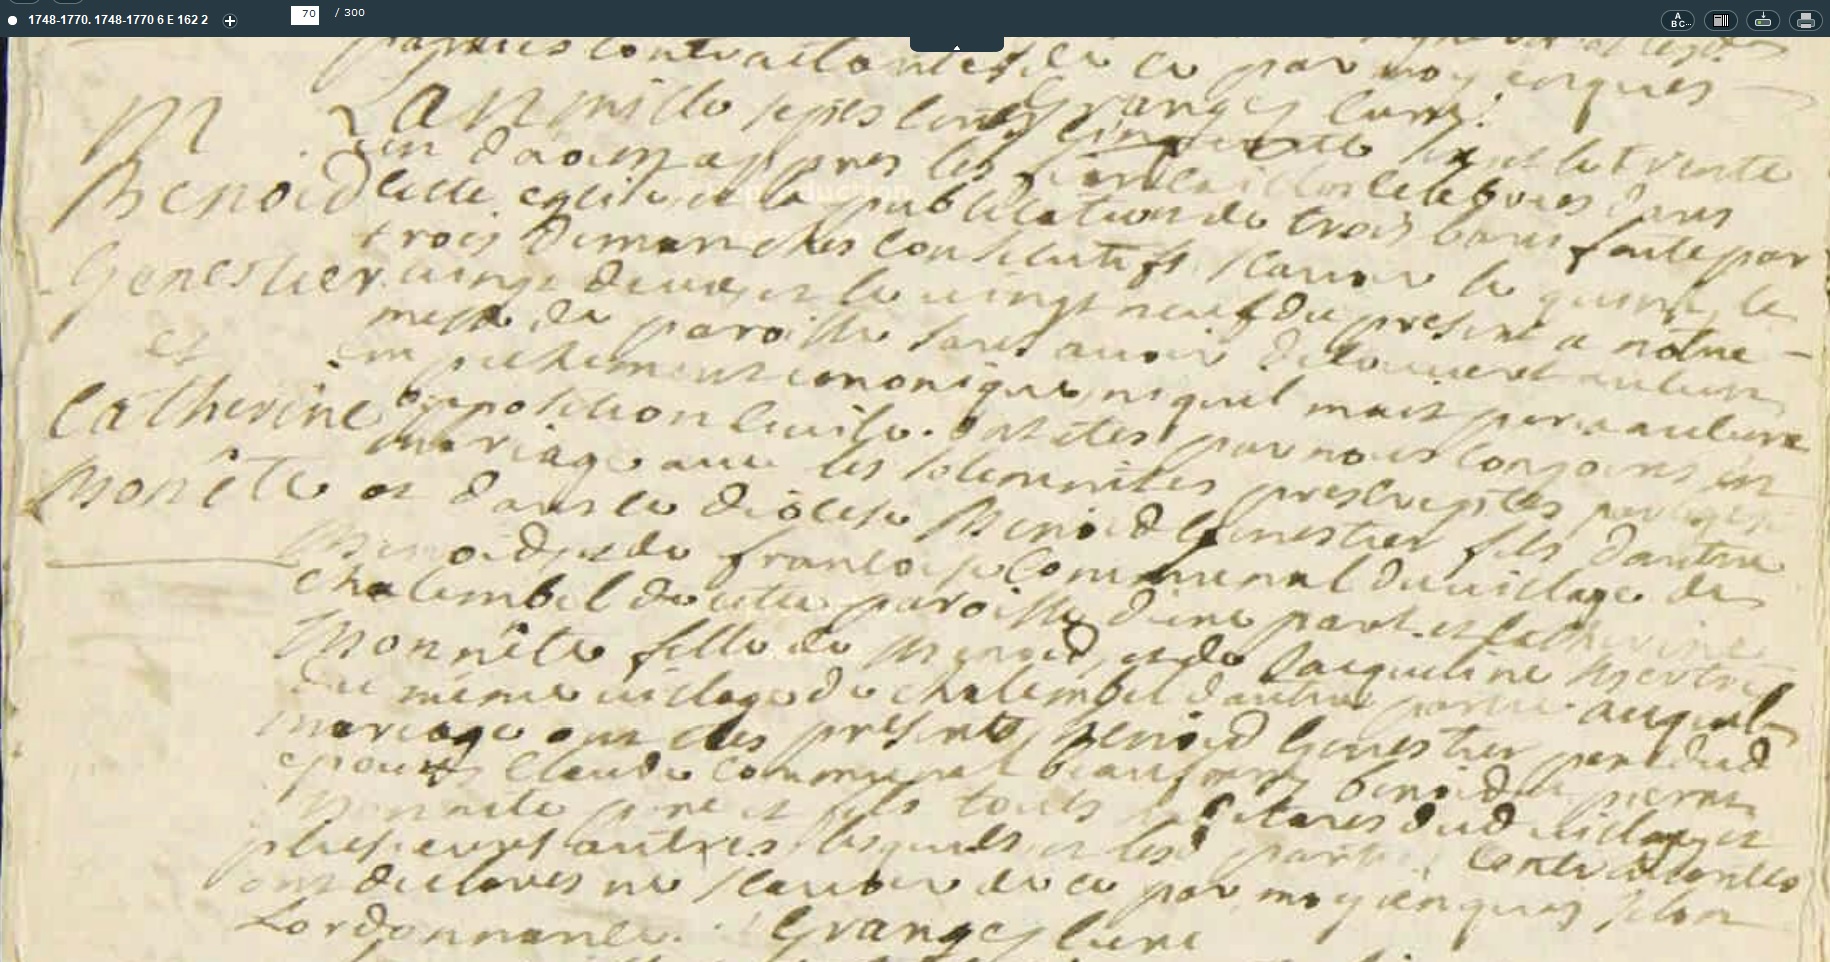 1748-1770. 1748-1770 6 E 162 2
70 / 300
parties contractantes de ce par moy enquis
Grangey curé
M
Benoid
Genestier
et
Catherine
Monnête
L'an mille sept cens cinquante et le trente
un daoust apres les fiancailles celebrees dans
cette eglise et la publication de trois bans faite par
trois dimanches consecutifs scavoir le quinze le
vingt deux et le vingt neuf du present a notre
messe de paroisse sans avoir decouvert aucun
empechement canonique ny quel mait paru aucune
opposition civile. ont etes par nous conjoins en
mariage avec les solemnites prescriptes par
dans le diocese Benoid Genestier fils dautre
Benoid et de francoise Communal du village de
chalembel de cette paroisse dune part. et Catherine
Monnête fille de Benoid, et de Jacqueline
du même village de chalembel dautre part. auquel
mariage ont etes presents Benoid Genestier pere dud
epoux, Claude Communal beaufrere, benoid et pierre
Monnete pere et fils touts dud village et
plusieurs autres lesquels et les parties contractantes
ont declares ne scavoir de ce par moy enquis selon
Lordonnance. Grangey curé